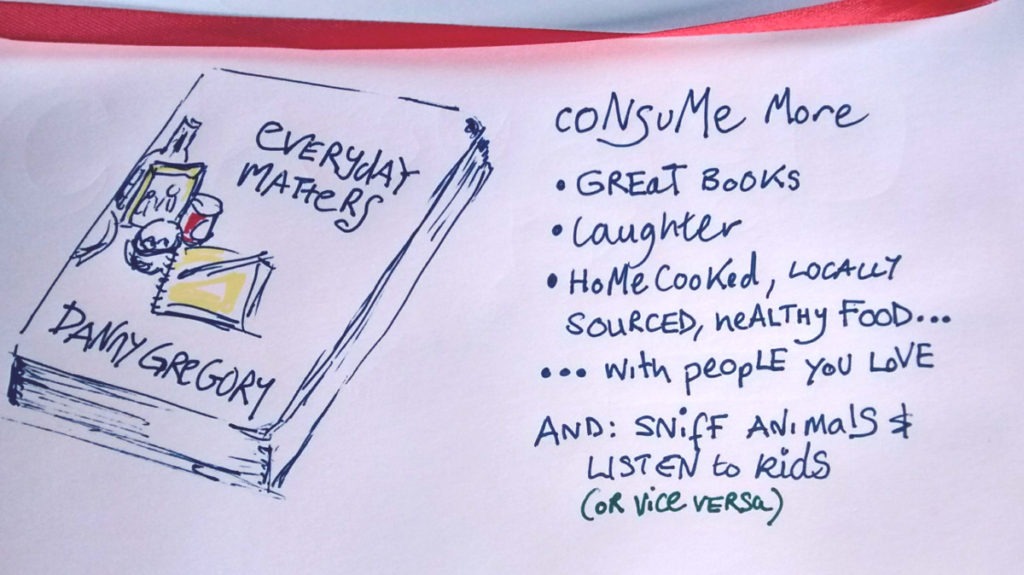 EVERYDAY
MATTERS
DANNY GREGORY
CONSUME More
• GREAT BOOKS
• Laughter
• HOMe COOKed, LOCALLY
SOURCED, HeALTHy FOOD...
... with peopLE you LOVE
AND: SNIFF ANIMALS &
LISTEN to kids
(OR Vice VERSa)